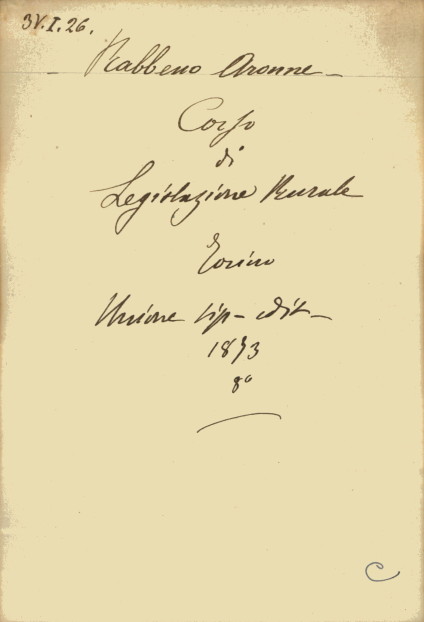 3V.I.26.
Rabbeno Aronne -
Corso
di
Legislazione Rurale
Torino
Unione tip- edit-
1873
8°
C